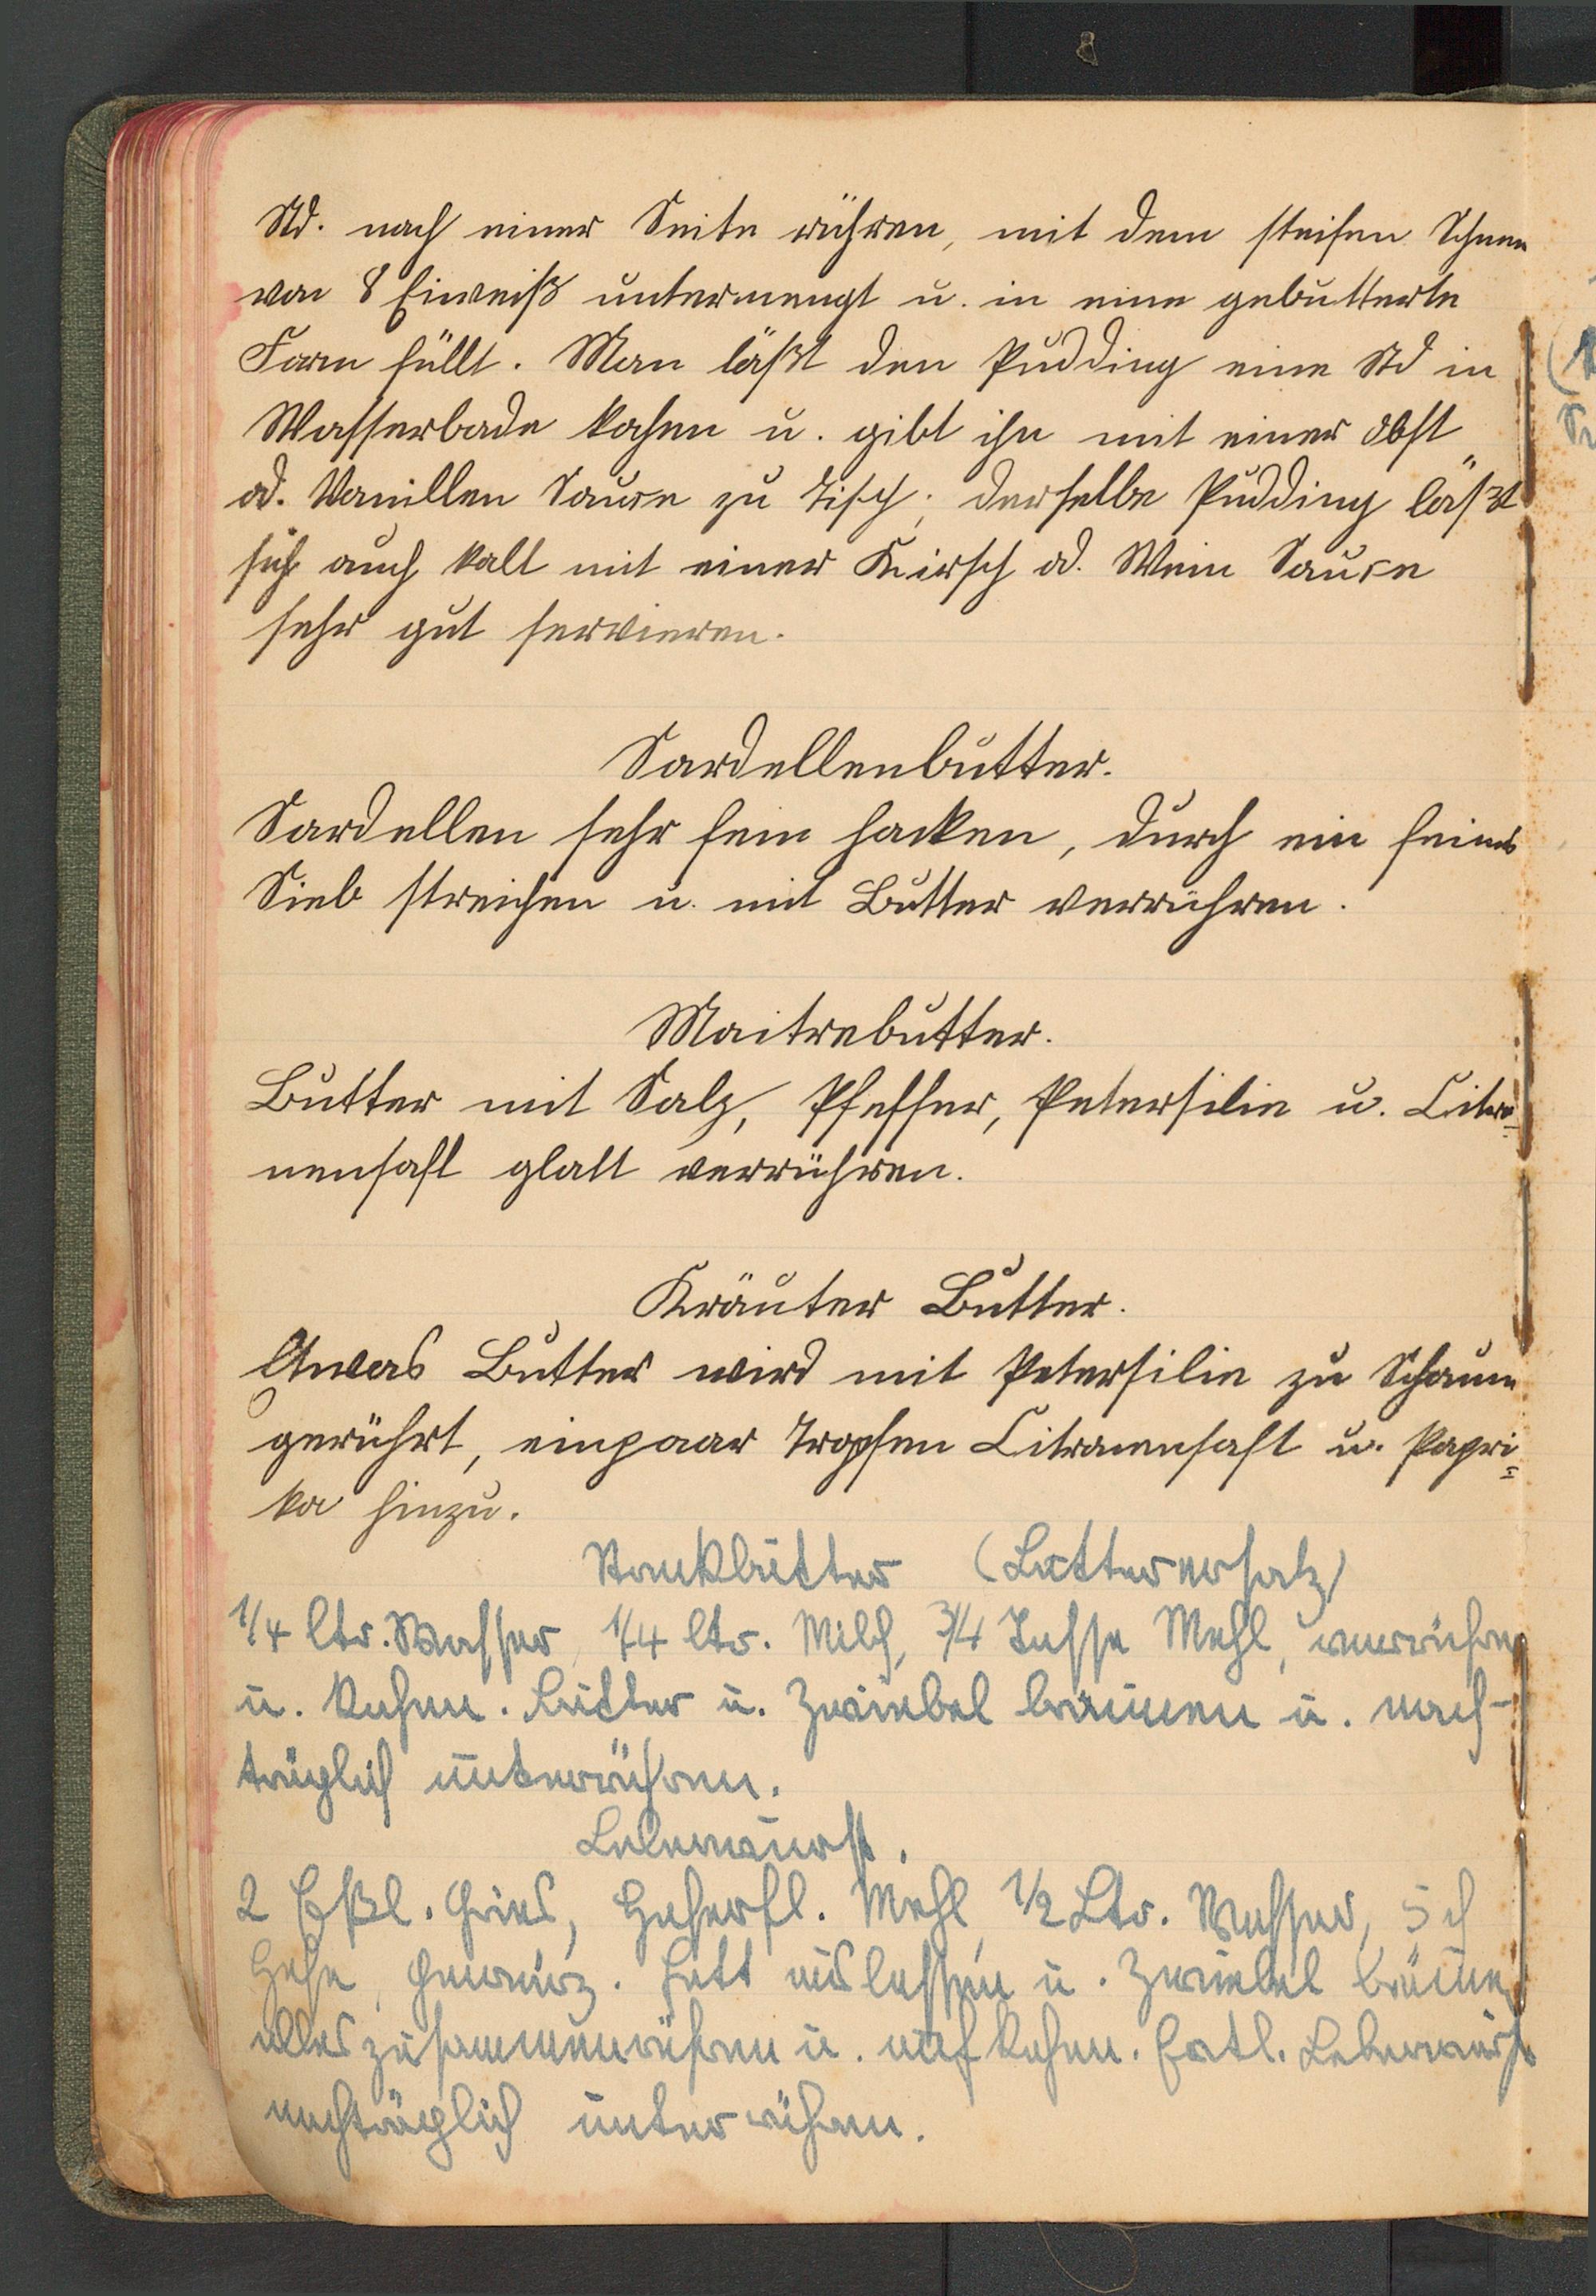 Std. nach einer Seite rühren, mit dem steifen Schnee
von 8 Eiweiß untermengt u. in eine gebutterte
Form füllt. Man läßt den Pudding eine Std in
Wasserbade kochen u. gibt ihn mit einer Obst
od. Vanillen Sauce zu Tisch; derselbe Pudding läßt
sich auch kalt mit einer Kirsch od. Wein Sauce
sehr gut servieren.
Sardellenbutter.
Sardellen sehr fein hacken, durch ein feines
Sieb streichen u. mit Butter verrühren.
Maitrebutter.
Butter mit Salz, Pfeffer, Petersilie u. Citro=
nensaft glatt verrühren.
Kräuter Butter.
Etwas Butter wird mit Petersilie zu Schaum
gerührt, einpaar Tropfen Citronensaft u. Papri=
ka hinzu.
Streckbutter (Butterersatz)
1/4 ltr. Wasser, 1/4 ltr. Milch, 3/4 Tasse Mehl, verrühren
u. kochen. Butter u. Zwiebel bräunen u. nach-
träglich unterrühren.
Leberwurst.
2 Eßl. Gries, Haferfl. Mehl, 1/2 Ltr. Wasser, 5
Hefe, Gewürz. Fett auslassen u. Zwiebel bräunen
alles zusammenrühren u. aufkochen. Evtl. Leberwurst
nachträglich unterrühren.